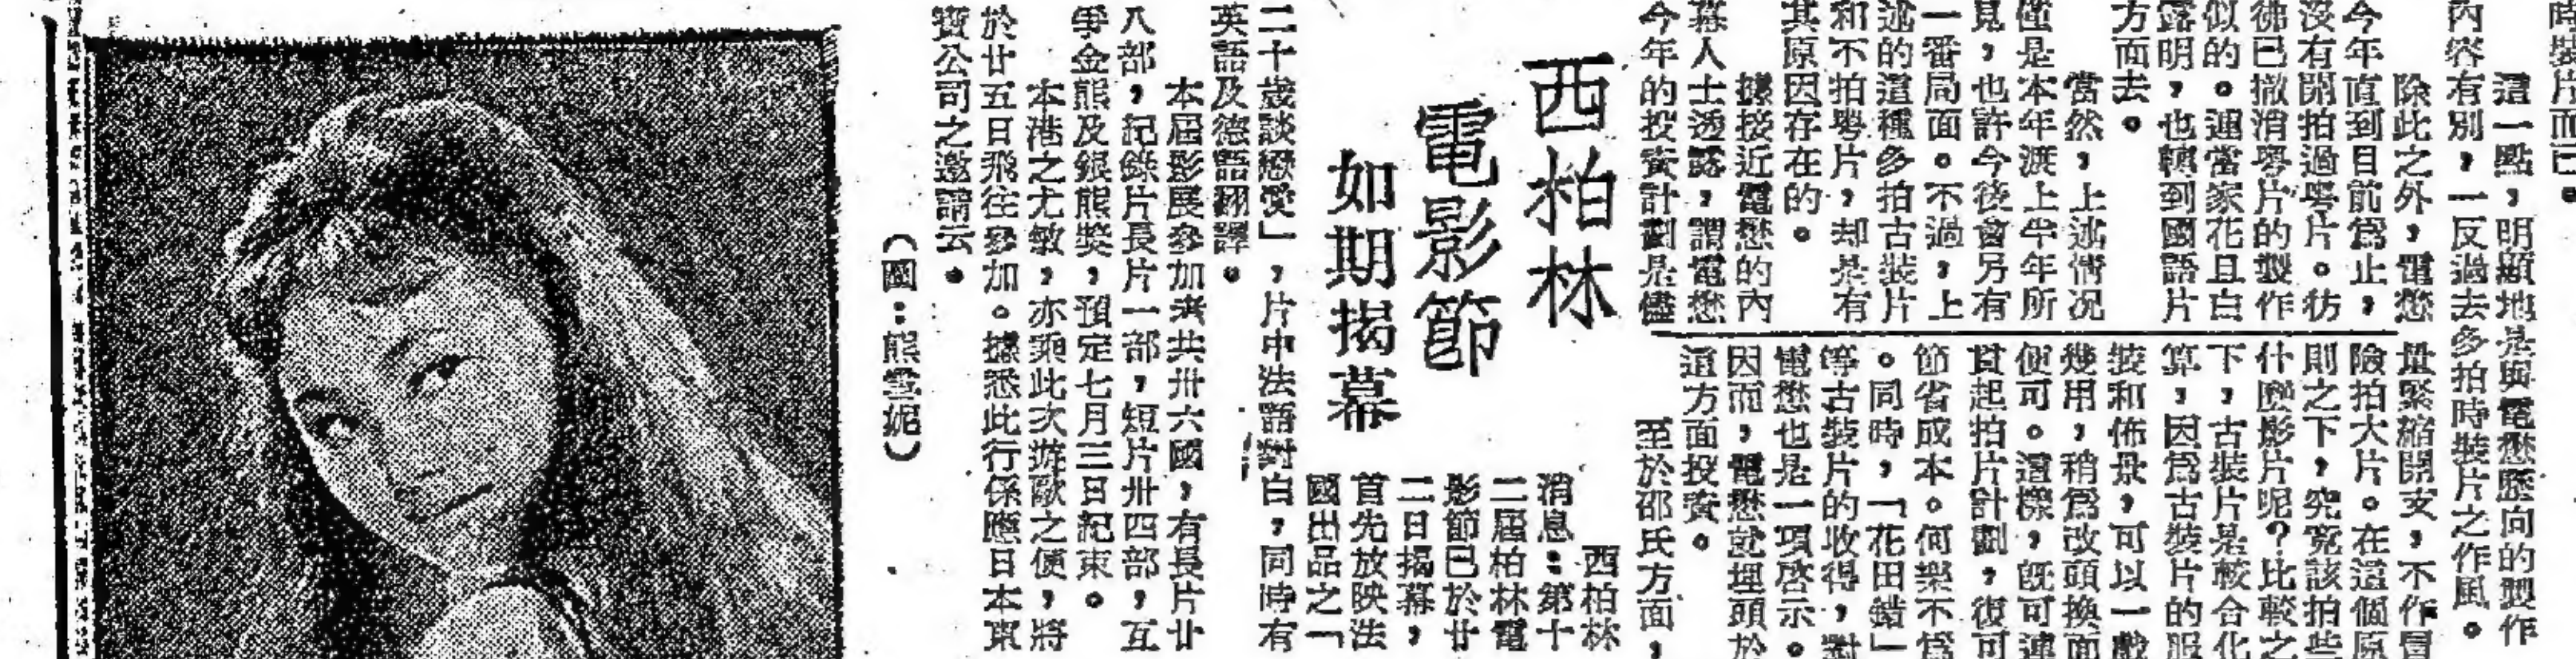 時裝片而已。
這一點，明顯地是與電懋歷向的製作
內容有別，一反過去多拍時裝片之作風。
除此之外，電懋
今年直到目前為止，
沒有開拍過粵片。彷
彿已撤消粵片的製作
似的。連當家花旦白
露明，也轉到國語片
方面去。
當然，上述情况
僅是本年度上半年所
見，也許今後會另有
一番局面。不過，上
述的這種多拍古裝片
和不拍粵片，却是有
其原因存在的。
據接近電懋的內
幕人士透露，謂電懋
今年的投資計劃是儘
量緊縮開支，不作冒
險拍大片。在這個原
則之下，究竟該拍些
什麼影片呢？比較之
下，古裝片是較合化
算，因為古裝片的服
裝和佈景，可以一戲
幾用，稍為改頭換面
便可。這樣，既可連
貫起拍片計劃，復可
節省成本。何樂不為
。同時，「花田錯」
等古裝片的收得，對
電懋也是一項啓示。
因而，電懋就埋頭於
這方面投資。
至於邵氏方面，
西柏林
電影節
如期揭幕
西柏林
消息：第十
二屆柏林電
影節已於廿
二日揭幕，
首先放映法
國出品之「
二十歲談戀愛」，片中法語對白，同時有
英語及德語翻譯。
本屆影展參加者共卅六國，有長片廿
八部，紀錄片長片一部，短片卅四部，互
爭金熊及銀熊獎，預定七月三日結束。
本港之尤敏，亦乘此次遊歐之便，將
於廿五日飛往參加。據悉此行係應日本東
寶公司之邀請云。
（圖：熊雪妮）